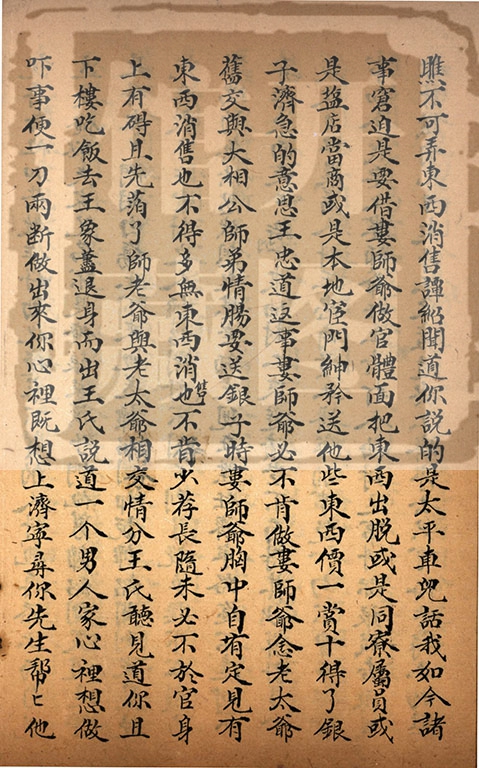 瞧不可弄東西消售譚紹聞道你說的是太平車兒話我如今諸
事窘迫是要借婁師爺做官體面把東西出脫或是同寮屬員或
是盐店當商或是本地宦門紳矜送他些東西價一賞十得了銀
子濟急的意思王忠道這事婁師爺必不肯做婁師爺念老太爺
舊交與大相公師弟情腸要送銀子時婁師爺胸中自有定見有
東西消售也不得多無東西消售也不肯少荐長隨未必不於官身
上有碍且先薄了師老爺與老太爺相交情分王氏聽見道你且
下樓吃飯去王象藎退身而出王氏說道一个男人家心裡想做
吓事便一刀兩断做出來你心裡既想上濟寧尋你先生幫匕他